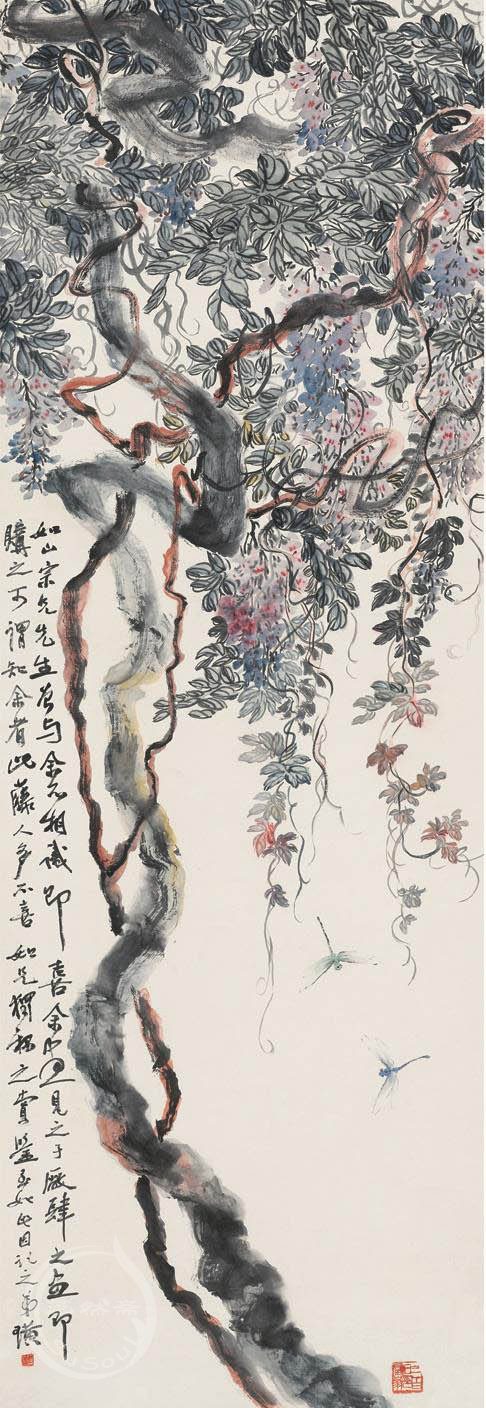 如山宗兄先生昔与余不相識即喜余画见之于厰肆之画即
購之可謂知余者此藤人多不喜如兄獨稱之賞鑒至此因記之弟璜